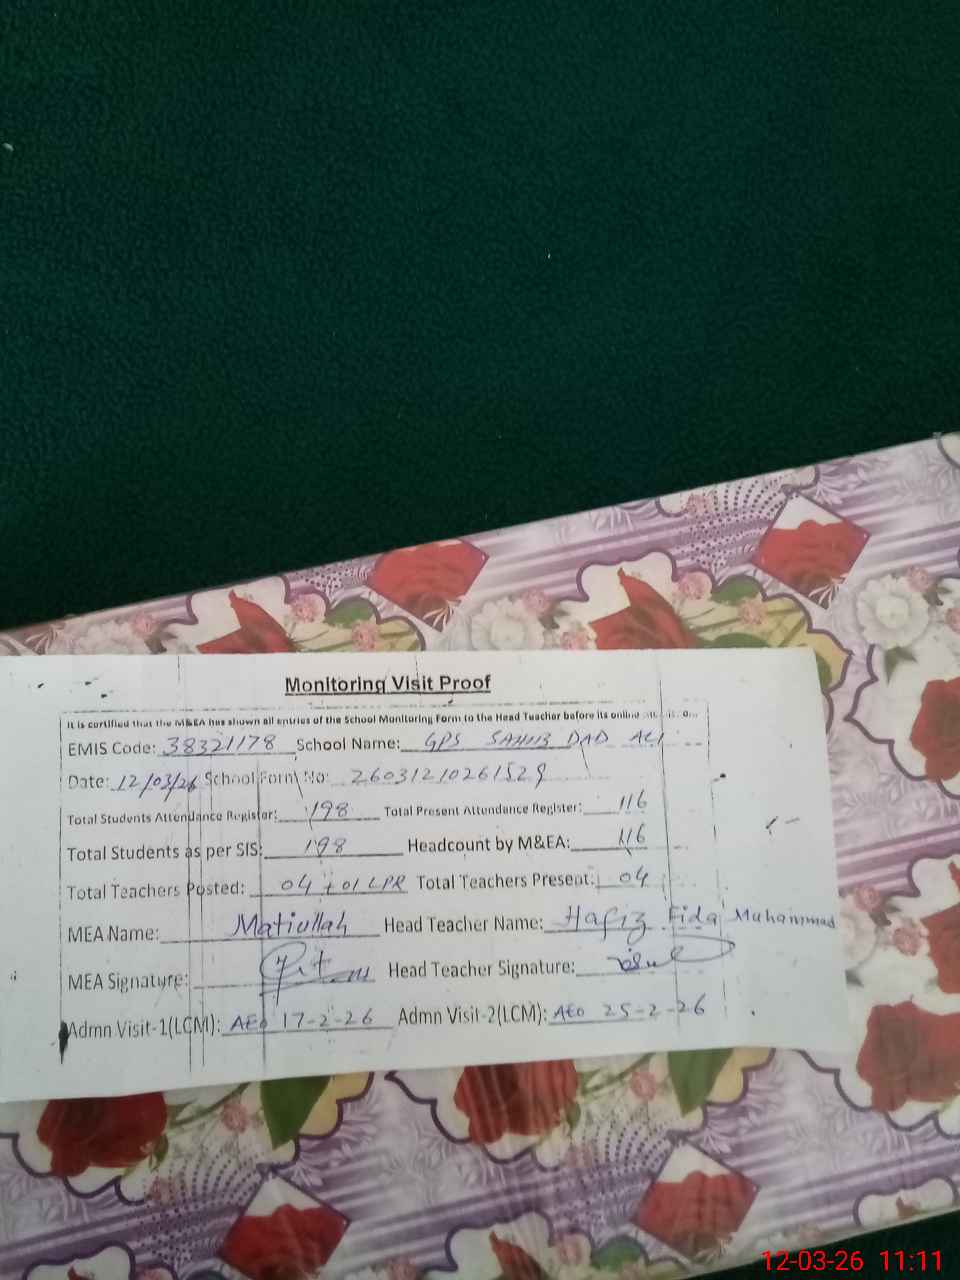 Monitoring Visit Proof
It is certified that the M&EA has shown all entries of the School Monitoring Form to the Head Teacher before its online
EMIS Code: 38321178 School Name: GPS SAHIB DAD ALI
Date: 12/03/26 School Form No: 26031210261529
Total Students Attendance Register: 198 Total Present Attendance Register: 116
Total Students as per SIS: 198 Headcount by M&EA: 116
Total Teachers Posted: 04 + 01 LPR Total Teachers Present: 04
MEA Name: Matiullah Head Teacher Name: Hafiz Fida Muhammad
MEA Signature: Head Teacher Signature:
Admn Visit-1(LCM): AEO 17-2-26 Admn Visit-2(LCM): AEO 25-2-26
12-03-26 11:11